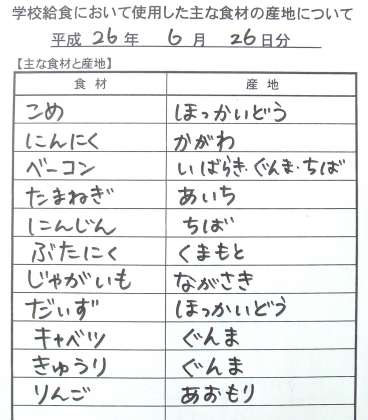 学校給食において使用した主な食材の産地について
平成 26 年 6 月 26 日分
【主な食材と産地】
食材 産地
こめ ほっかいどう
にんにく かがわ
ベーコン いばらき・ぐんま・ちば
たまねぎ あいち
にんじん ちば
ぶたにく くまもと
じゃがいも ながさき
だいず ほっかいどう
キャベツ ぐんま
きゅうり ぐんま
りんご あおもり